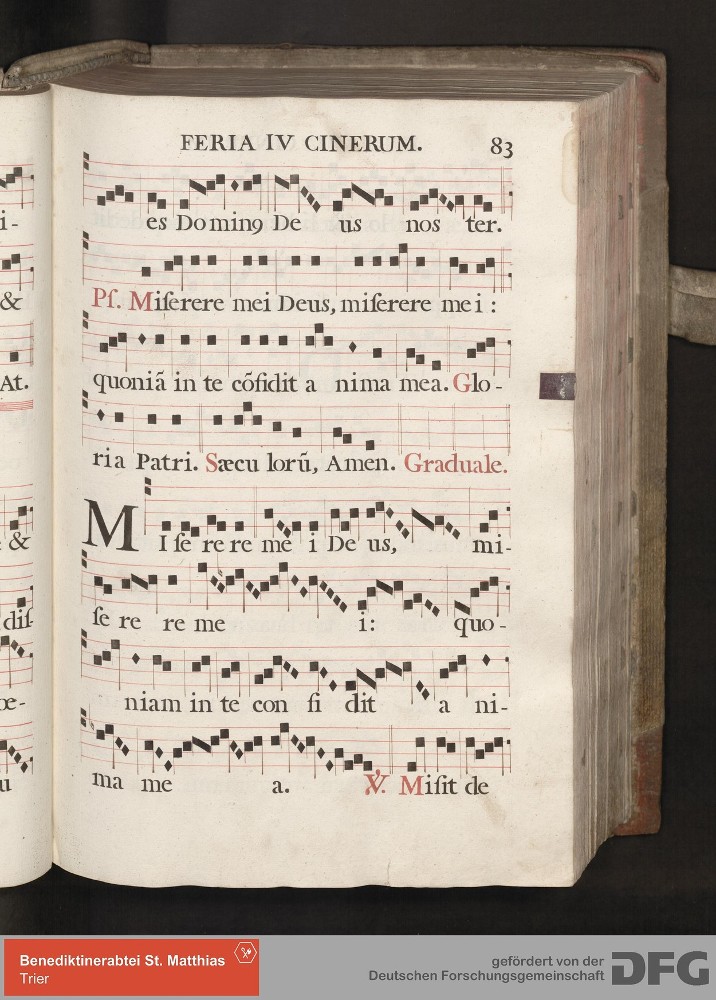 FERIA IV CINERUM. 83
i-
es Do minꝯ De us nos ter.
&
Pſ. Miſerere mei Deus, miſerere me i :
At.
quoniã in te cõfidit a nima mea. Glo-
ria Patri. Sæcu lorũ, Amen. Graduale.
&
MI ſe re re me i De us, mi-
diſ-
ſe re re me i: quo-
œ-
niam in te con fi dit a ni-
u
ma me a. ℣. Miſit de
Benediktinerabtei St. Matthias
Trier
gefördert von der
Deutschen Forschungsgemeinschaft DFG